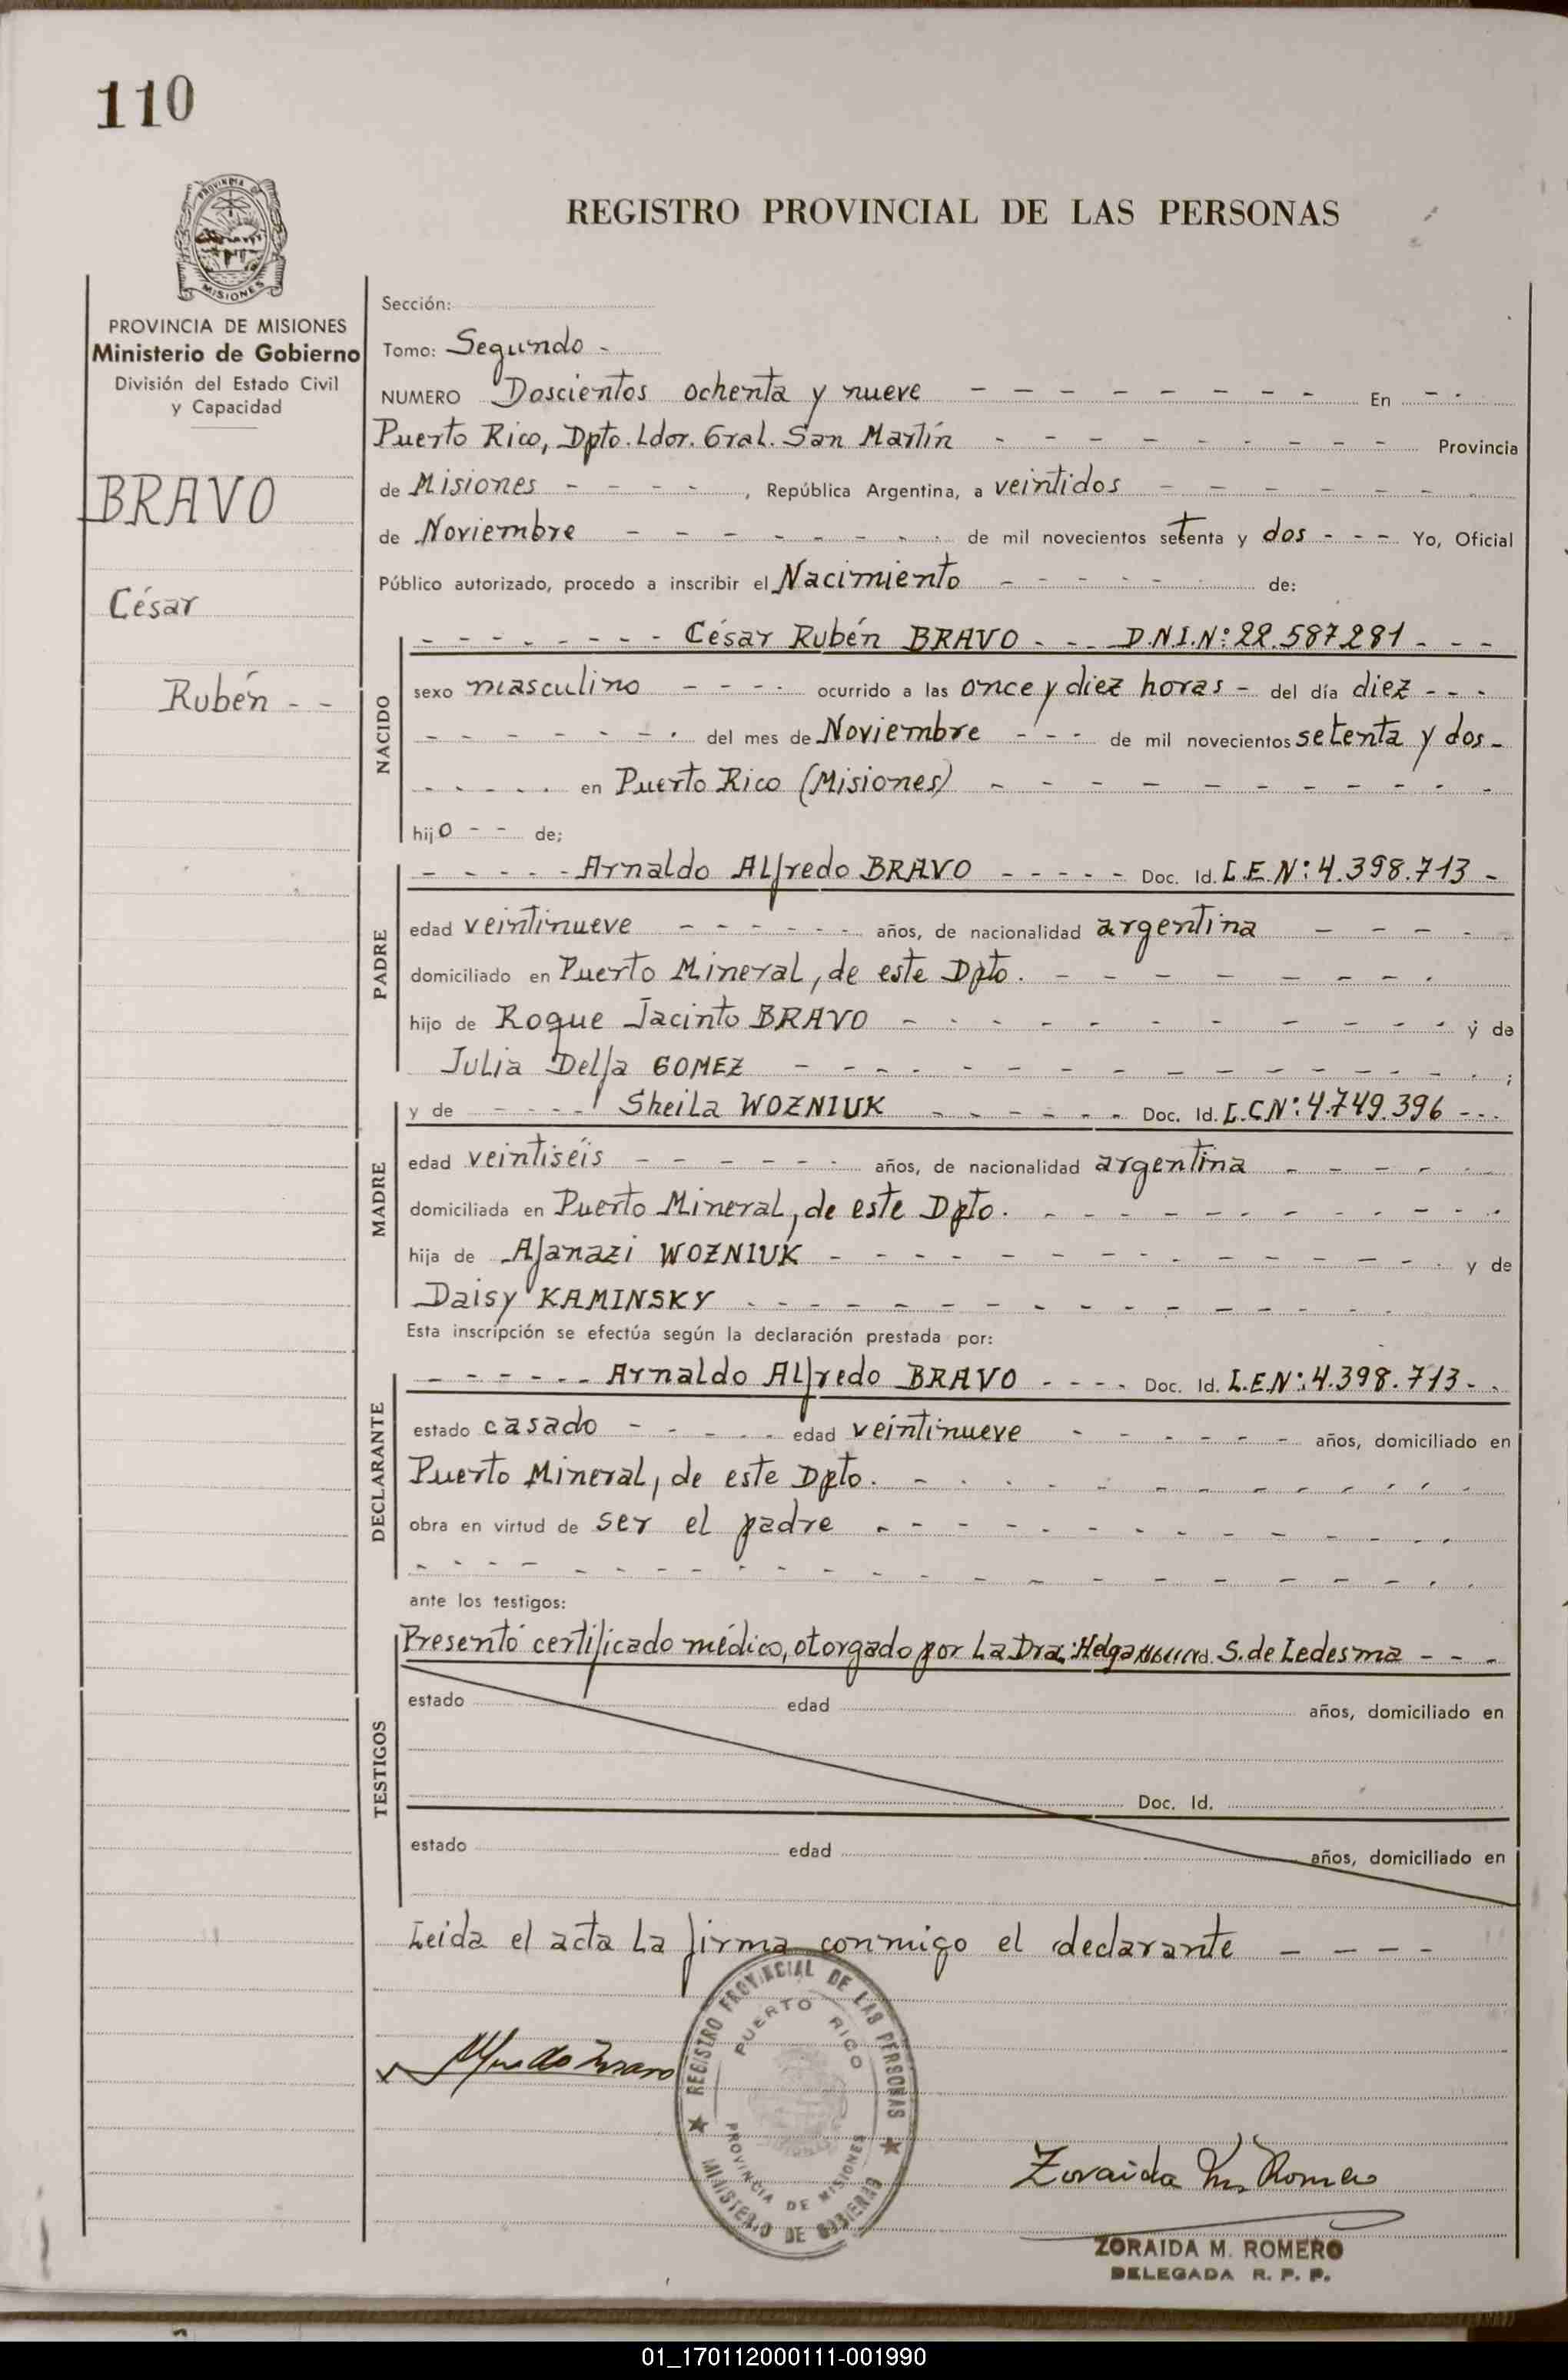 110
PROVINCIA DE
MISIONES
REGISTRO PROVINCIAL DE LAS PERSONAS
PROVINCIA DE MISIONES
Ministerio de Gobierno
División del Estado Civil
y Capacidad
BRAVO
César
Rubén - -
Sección:
Tomo: Segundo -
NUMERO Doscientos ochenta y nueve - - - - - - - - En - -
Puerto Rico, Dpto. Ldor. Gral. San Martín - - - - - - - - - Provincia
de Misiones - - - - , República Argentina, a veintidos - - - - - - -
de Noviembre - - - - - - - - de mil novecientos setenta y dos - - - Yo, Oficial
Público autorizado, procedo a inscribir el Nacimiento - - - - - - de:
NACIDO
- - - - - - - - César Rubén BRAVO - - - D.N.I.Nº: 22.587.281 - - -
sexo masculino - - - - ocurrido a las once y diez horas - del día diez - - -
- - - - - - - del mes de Noviembre - - - de mil novecientos setenta y dos -
- - - - - en Puerto Rico (Misiones) - - - - - - - - - -
hijo - - de;
PADRE
- - - - - Arnaldo Alfredo BRAVO - - - - - Doc. Id. L.E.Nº: 4.398.713 -
edad veintinueve - - - - - - años, de nacionalidad argentina - - - -
domiciliado en Puerto Mineral, de este Dpto. - - - - - - - -
hijo de Roque Jacinto BRAVO - - - - - - - - - - y de
Julia Delfa GOMEZ - - - - - - - - - - - - - ;
MADRE
y de - - - - Sheila WOZNIUK - - - - - - Doc. Id. L.C.Nº: 4.749.396 - - -
edad veintiséis - - - - - - años, de nacionalidad argentina - - - - -
domiciliada en Puerto Mineral, de este Dpto. - - - - - - - - - -
hija de Afanazi WOZNIUK - - - - - - - - - - - - y de
Daisy KAMINSKY - - - - - - - - - - - - -
Esta inscripción se efectúa según la declaración prestada por:
DECLARANTE
- - - - - - Arnaldo Alfredo BRAVO - - - - Doc. Id. L.E.Nº: 4.398.713 - -
estado casado - - - - - edad veintinueve - - - - - - años, domiciliado en
Puerto Mineral, de este Dpto. - - - - - - - - - - -
obra en virtud de ser el padre - - - - - - - - - - - -
- - - - - - - - - - - - - - - - - - -
ante los testigos:
TESTIGOS
Presentó certificado médico, otorgado por La Dra: Helga S. de Ledesma - - -
estado edad años, domiciliado en
Doc. Id.
estado edad años, domiciliado en
Leida el acta La firma conmigo el declarante - - - -
REGISTRO PROVINCIAL DE LAS PERSONAS
PUERTO RICO
PROVINCIA DE MISIONES
MINISTERIO DE GOBIERNO
Zoraida M. Romero
ZORAIDA M. ROMERO
DELEGADA R. P. P.
01_170112000111-001990